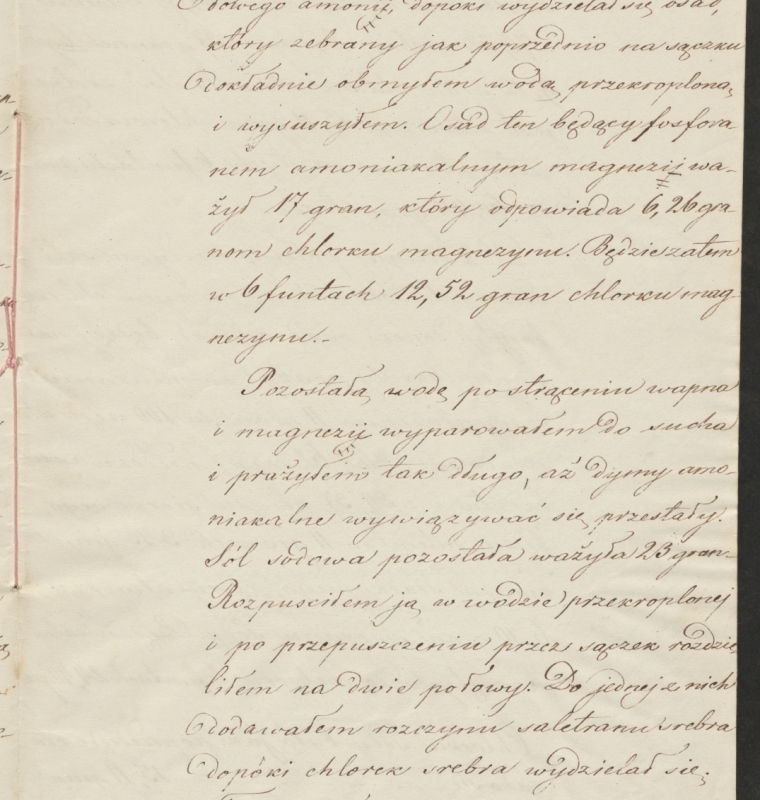 dowego amonii, dopóki wydzielał się osad,
który zebrany jak poprzednio na sączku
dokładnie obmyłem wodą przekroploną
i wysuszyłem. Osad ten będący fosfora-
nem amoniakalnym magnezii wa-
żył 17 gran, który odpowiada 6,26 gra-
nom chlorku magnezynu. Będzie zatem
w 6 funtach 12,52 gran chlorku mag-
nezynu.-
Pozostałą wodę po strąceniu wapna
i magnezii wyparowałem do sucha
i prażyłem tak długo, aż dymy amo-
niakalne wywiązywać się przestały.
Sól sodowa pozostała ważyła 23 gran.
Rozpuściłem ją w wodzie przekroplonej
i po przepuszczeniu przez sączek rozdzie-
liłem na dwie połowy. Do jednej z nich
dodawałem rozczynu saletranu srebra
dopóki chlorek srebra wydzielał się;